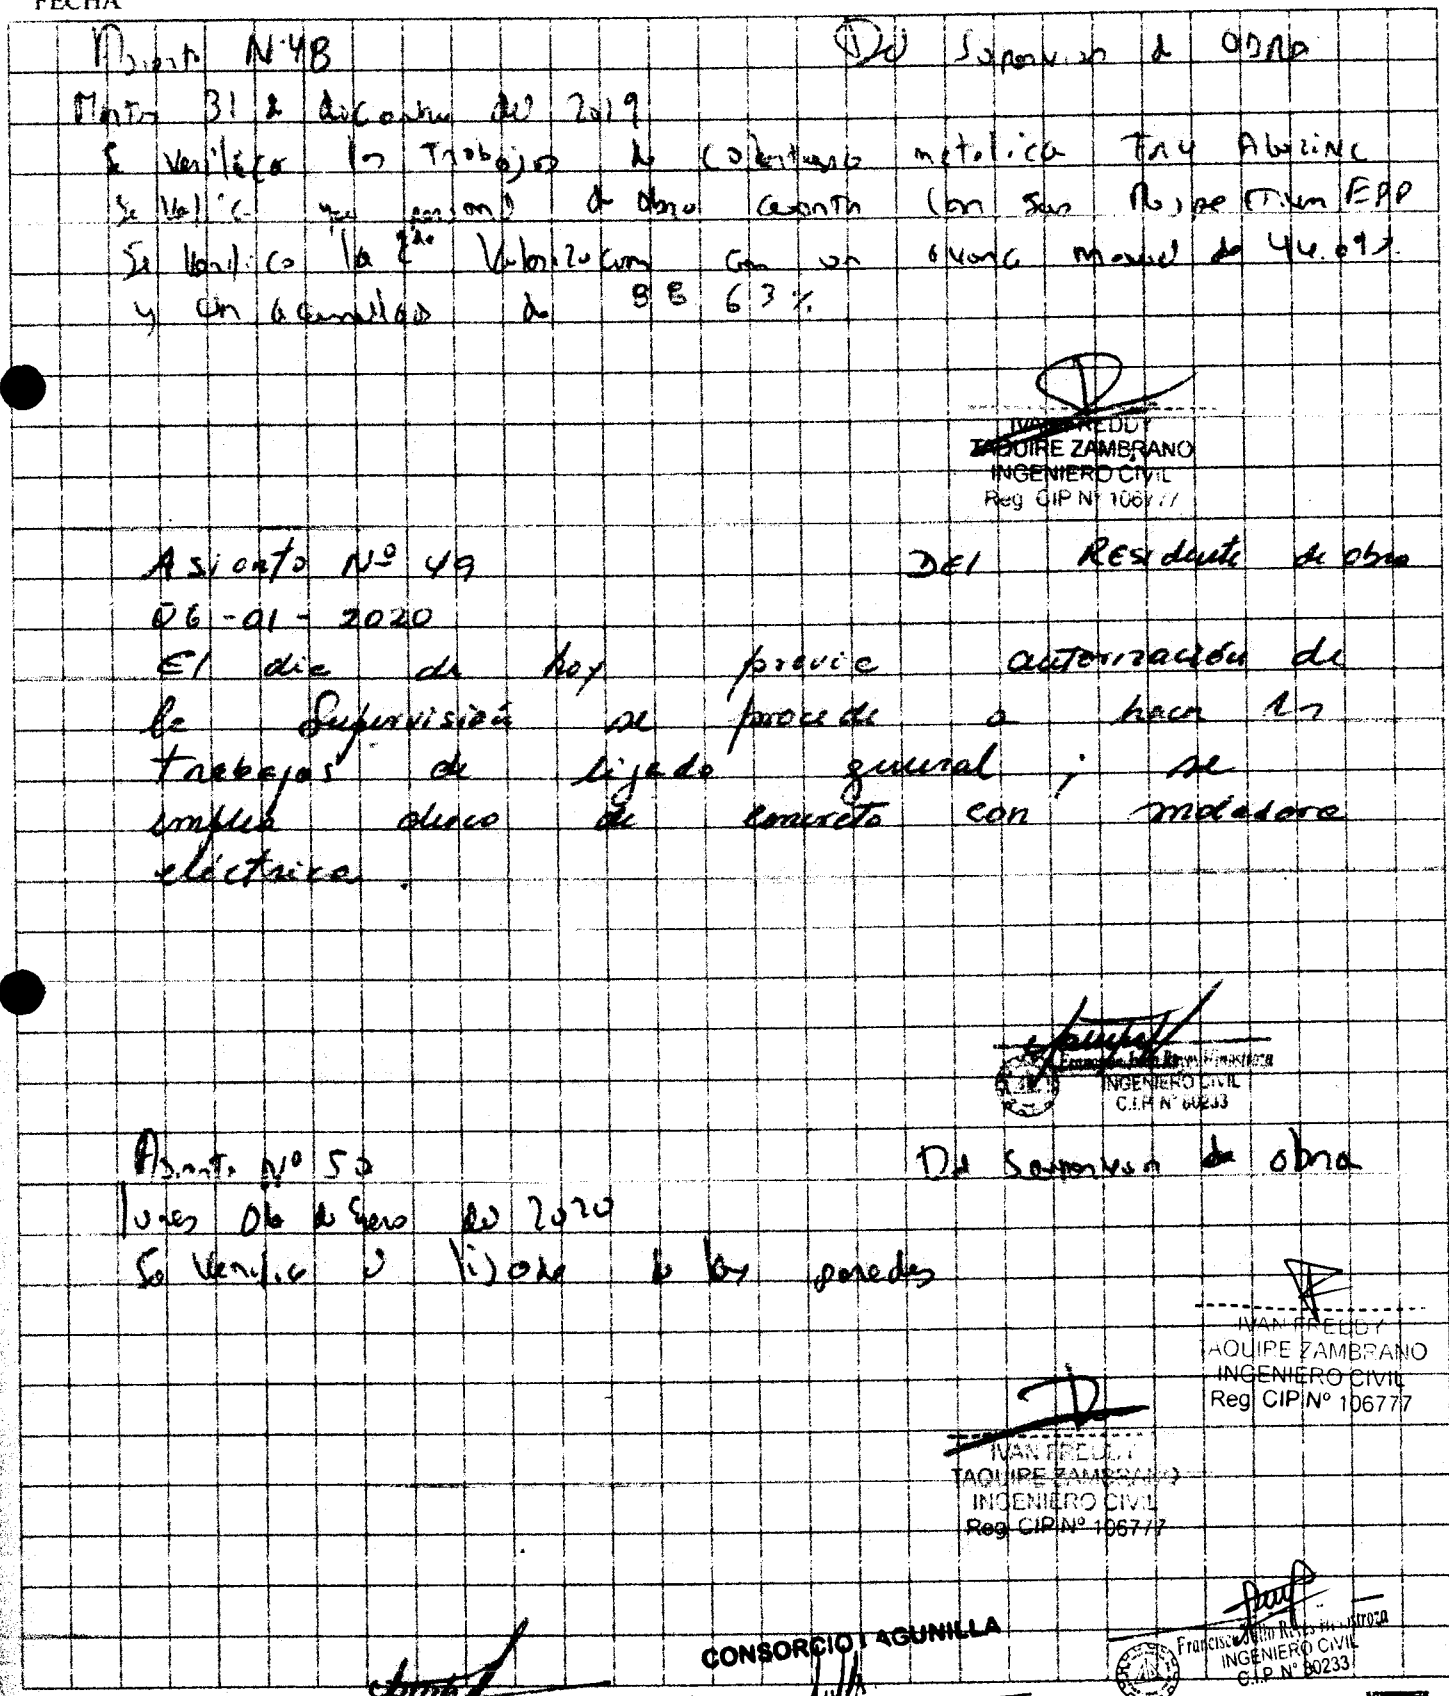 FECHA
Asiento N° 48 Del Supervisor de OBRA
Martes 31 de diciembre del 2019
Se verifica los Trabajos de cobertura metalica TR4 Aluzinc
Se verific que personal de obra cuenta con sus Respectivos EPP
Se verifico la 2da Valorizacion con un avance mensual de 44.09%
y un acumulado de 63%
IVAN FREDDY
TAQUIRE ZAMBRANO
INGENIERO CIVIL
Reg. CIP Nº 106777
Asiento Nº 49 DEl Residente de obra
06-01-2020
El dia de hoy previa autorización de
la Supervisión se procede a hacer los
trabajos de lijado general; se
emplea disco de concreto con moladora
eléctrica.
INGENIERO CIVIL
C.I.P. N° 80233
Asiento Nº 50 Del Supervisor de obra
lunes 06 de Enero del 2020
Se verifica el lijado de las paredes
IVAN FREDDY
TAQUIRE ZAMBRANO
INGENIERO CIVIL
Reg. CIP Nº 106777
IVAN FREDDY
TAQUIRE ZAMBRANO
INGENIERO CIVIL
Reg. CIP Nº 106777
CONSORCIO LAGUNILLA
Francisco Julio Reyes
INGENIERO CIVIL
C.I.P. N° 80233